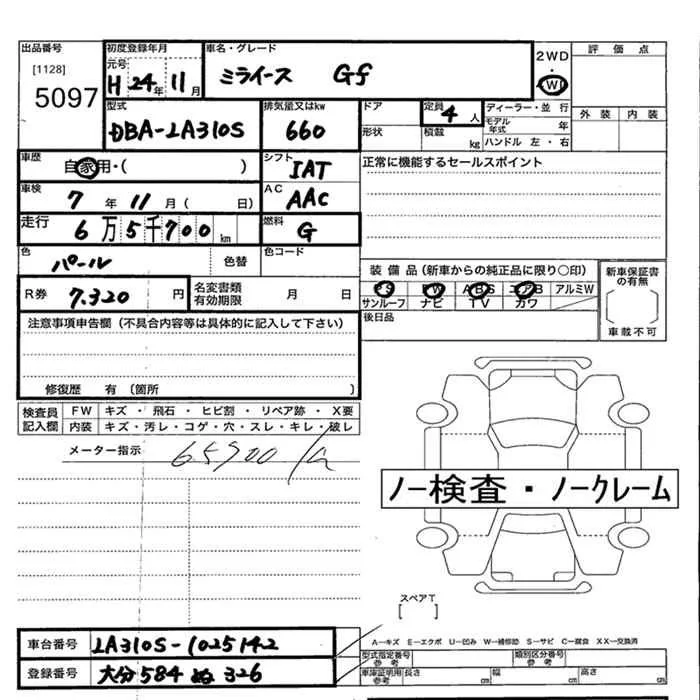 出品番号 [1128] 5097
初度登録年月 元号 H 24年 11月
車名・グレード ミライース Gf
2WD・4WD
評価点
外装 内装
型式 DBA-LA310S
排気量又はkw 660
ドア
形状
定員 4人
積載 kg
ディーラー・並行
モデル年式 年
ハンドル 左・右
車歴 自家用・( )
シフト IAT
正常に機能するセールスポイント
車検 7年 11月( 日)
AC AAC
走行 6万5千700km
燃料 G
色 パール 色替
色コード
R券 7,320円
名変書類有効期限 月 日
装備品(新車からの純正品に限り○印)
PS PW ABS エアB アルミW
サンルーフ ナビ TV カワ
後日品
新車保証書の有無
車載不可
注意事項申告欄(不具合内容等は具体的に記入して下さい)
修復歴 有(箇所 )
検査員記入欄
FW キズ・飛石・ヒビ割・リペア跡・X要
内装 キズ・汚レ・コゲ・穴・スレ・キレ・破レ
メーター指示
ノー検査・ノークレーム
スペアT
[ ]
A―キズ E―エクボ U―凹み W―補修跡 S―サビ C―腐食 XX―交換済
車台番号 LA310S-1025142
登録番号 大分 584 ぬ 326
型式指定番号 参考
類別区分番号 参考
車庫証明用 参考
長さ cm 幅 cm 高さ cm